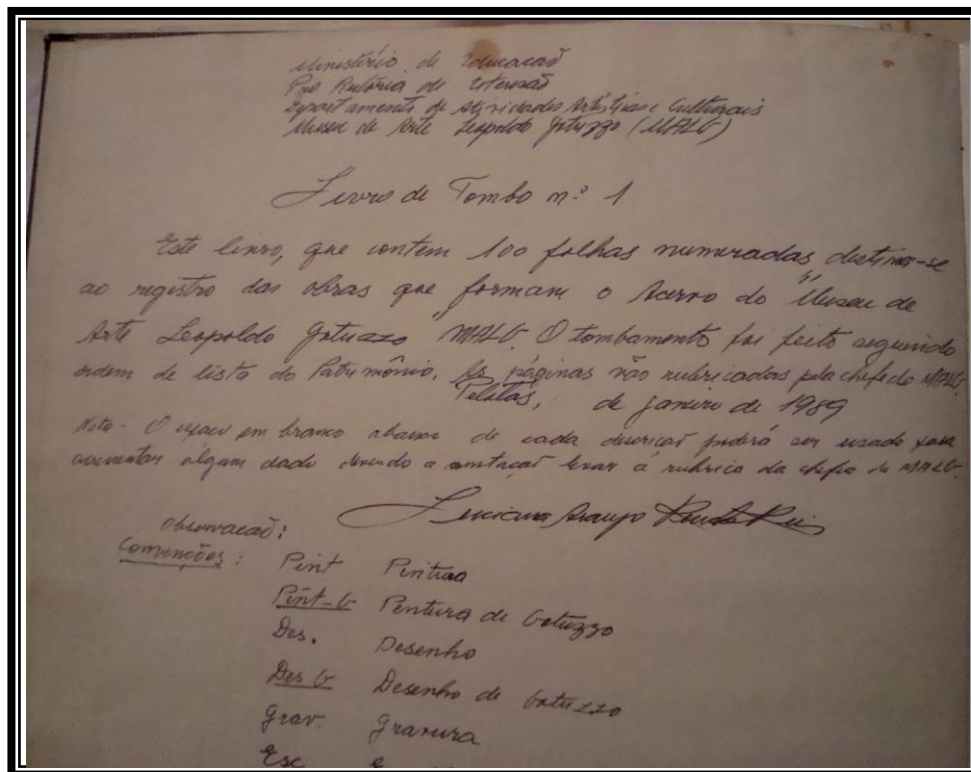 Ministério de Educação
Pró Reitoria de Extensão
Departamento de Atividades Artísticas e Culturais
Museu de Arte Leopoldo Gotuzzo (MALG)
Livro de Tombo n.º 1
Este livro, que contem 100 folhas numeradas, destina-se
ao registro das obras que formam o Acervo do "Museu de
Arte Leopoldo Gotuzzo" MALG. O tombamento foi feito seguindo
ordem de lista do Patrimônio. As páginas vão rubricadas pela chefe do MALG.
Pelotas, de janeiro de 1989
Nota - O espaço em branco abaixo de cada descrição poderá ser usado para
acrescentar algum dado devendo a anotação levar á rubrica da chefia do MALG.
Luciana Araujo
Observação:
Convenções: Pint Pintura
Pint-G Pintura de Gotuzzo
Des. Desenho
Des G Desenho de Gotuzzo
Grav. Gravura
Esc